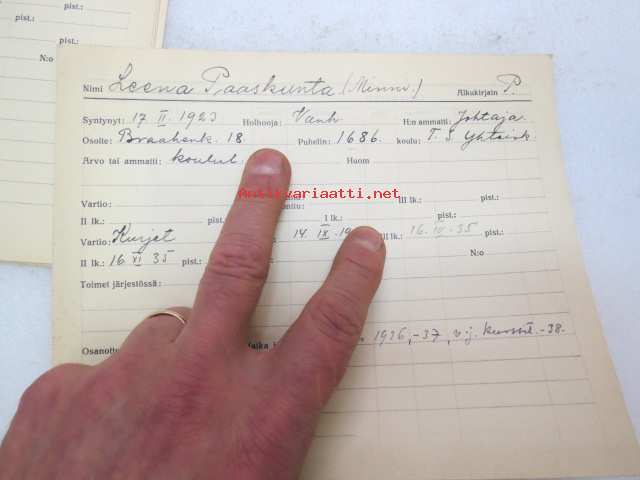 pist.:
pist.:
pist.:
N:o
Nimi Leena Paaskunta (Minnv.) Alkukirjain P.
Syntynyt: 17 II. 1923 Holhooja: Vanh. H:n ammatti: Johtaja
Osoite: Braahenk. 18. Puhelin: 1686. koulu: T. S. Yhteisk.
Arvo tai ammatti: koulul. Huom
Antikvariaatti.net
Vartio: III lk.: pist.:
II lk.: pist. I lk.: pist.:
Vartio: Kurjet 14 IX. III lk.: 16. IV - 35 pist.:
II lk.: 16 XI 35 pist.: N:o
Toimet järjestössä:
1936, -37, v.j. kurssit. -38.